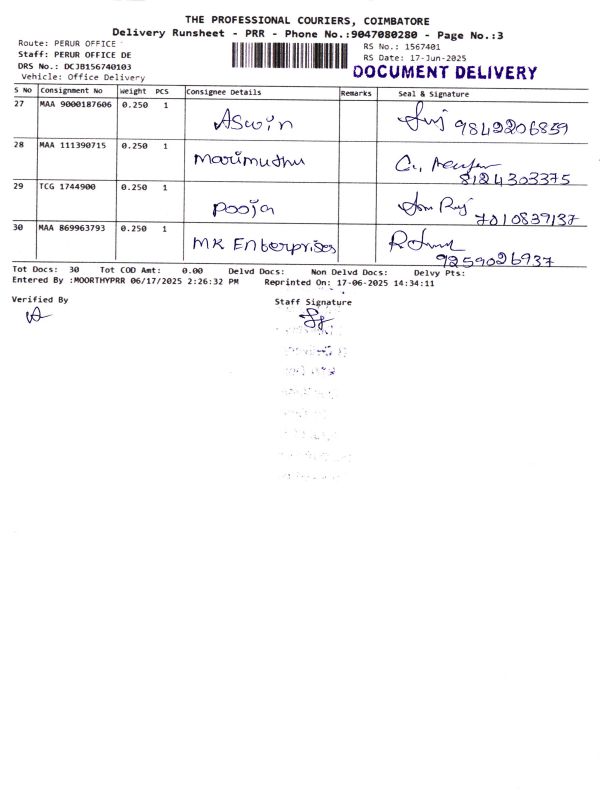 THE PROFESSIONAL COURIERS, COIMBATORE
Delivery Runsheet - PRR - Phone No.:9047080280 - Page No.:3
Route: PERUR OFFICE
Staff: PERUR OFFICE DE
DRS No.: DCJB156740103
Vehicle: Office Delivery
RS No.: 1567401
RS Date: 17-Jun-2025
DOCUMENT DELIVERY
S No Consignment No Weight PCS Consignee Details Remarks Seal & Signature
27 MAA 9000187606 0.250 1 Aswin 9842206859
28 MAA 111390715 0.250 1 Marimuthu 8124303375
29 TCG 1744900 0.250 1 Pooja 7010839137
30 MAA 869963793 0.250 1 MK Enterprises 9259026937
Tot Docs: 30 Tot COD Amt: 0.00 Delvd Docs: Non Delvd Docs: Delvy Pts:
Entered By :MOORTHYPRR 06/17/2025 2:26:32 PM Reprinted On: 17-06-2025 14:34:11
Verified By Staff Signature